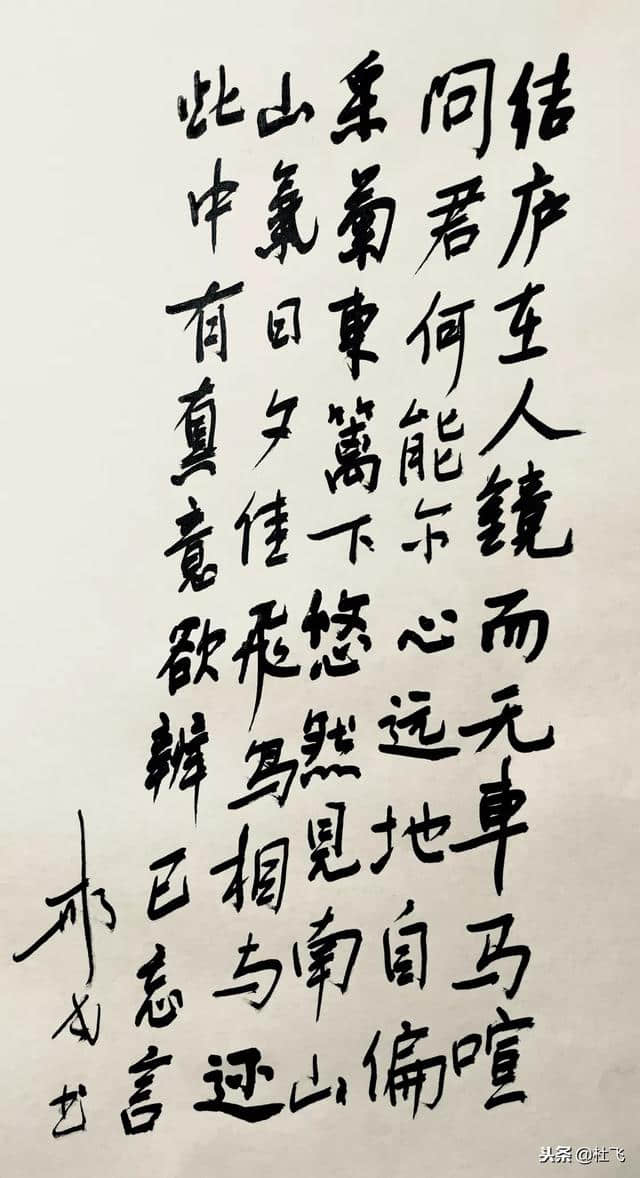 结庐在人鏡而无車马喧
问君何能尔心远地自偏
采菊東篱下悠然見南山
山氣日夕佳飛鸟相与还
此中有真意欲辨已忘言
书
头条 @杜飞